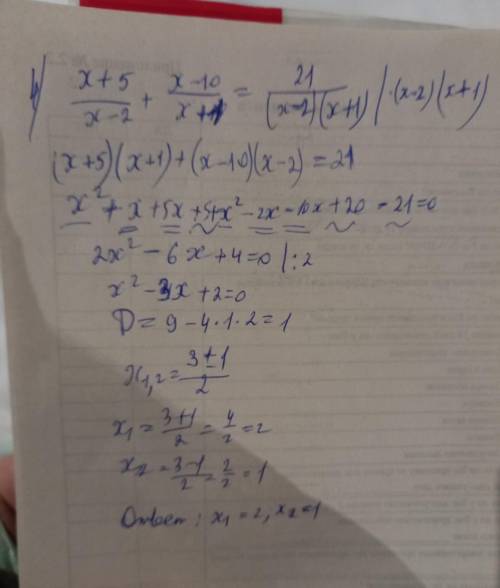 4) (x+5)/(x-2) + (x-10)/(x+1) = 21/((x-2)(x+1)) | ·(x-2)(x+1)
(x+5)(x+1)+(x-10)(x-2)=21
x²+x+5x+5+x²-2x-10x+20-21=0
2x²-6x+4=0 |:2
x²-3x+2=0
D=9-4·1·2=1
x₁,₂=(3±1)/2
x₁=(3+1)/2=4/2=2
x₂=(3-1)/2=2/2=1
Ответ: x₁=2, x₂=1